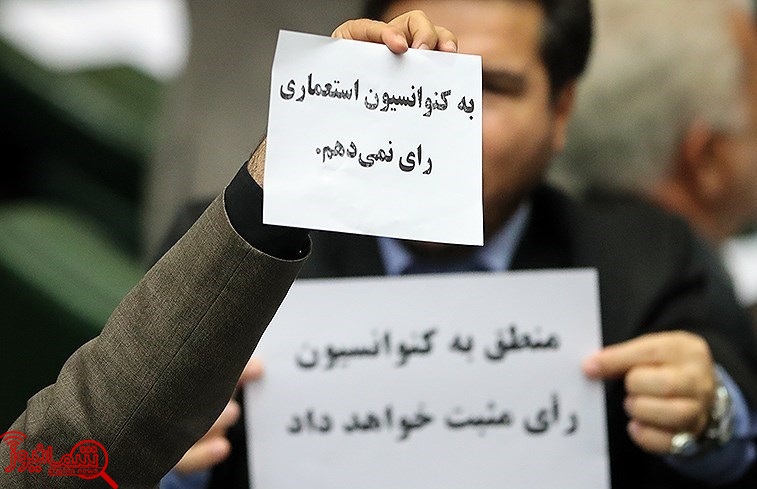 به کنوانسیون استعماری
رای نمی‌دهم.
منطق به کنوانسیون
رأی مثبت خواهد داد